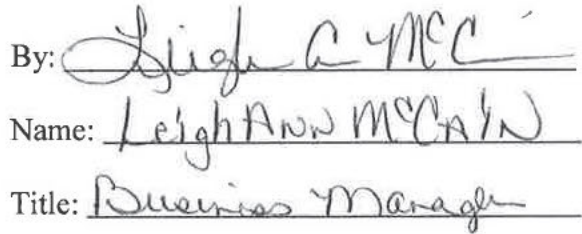 By: Leigh A McC
Name: LeighAnn McCain
Title: Business Manager